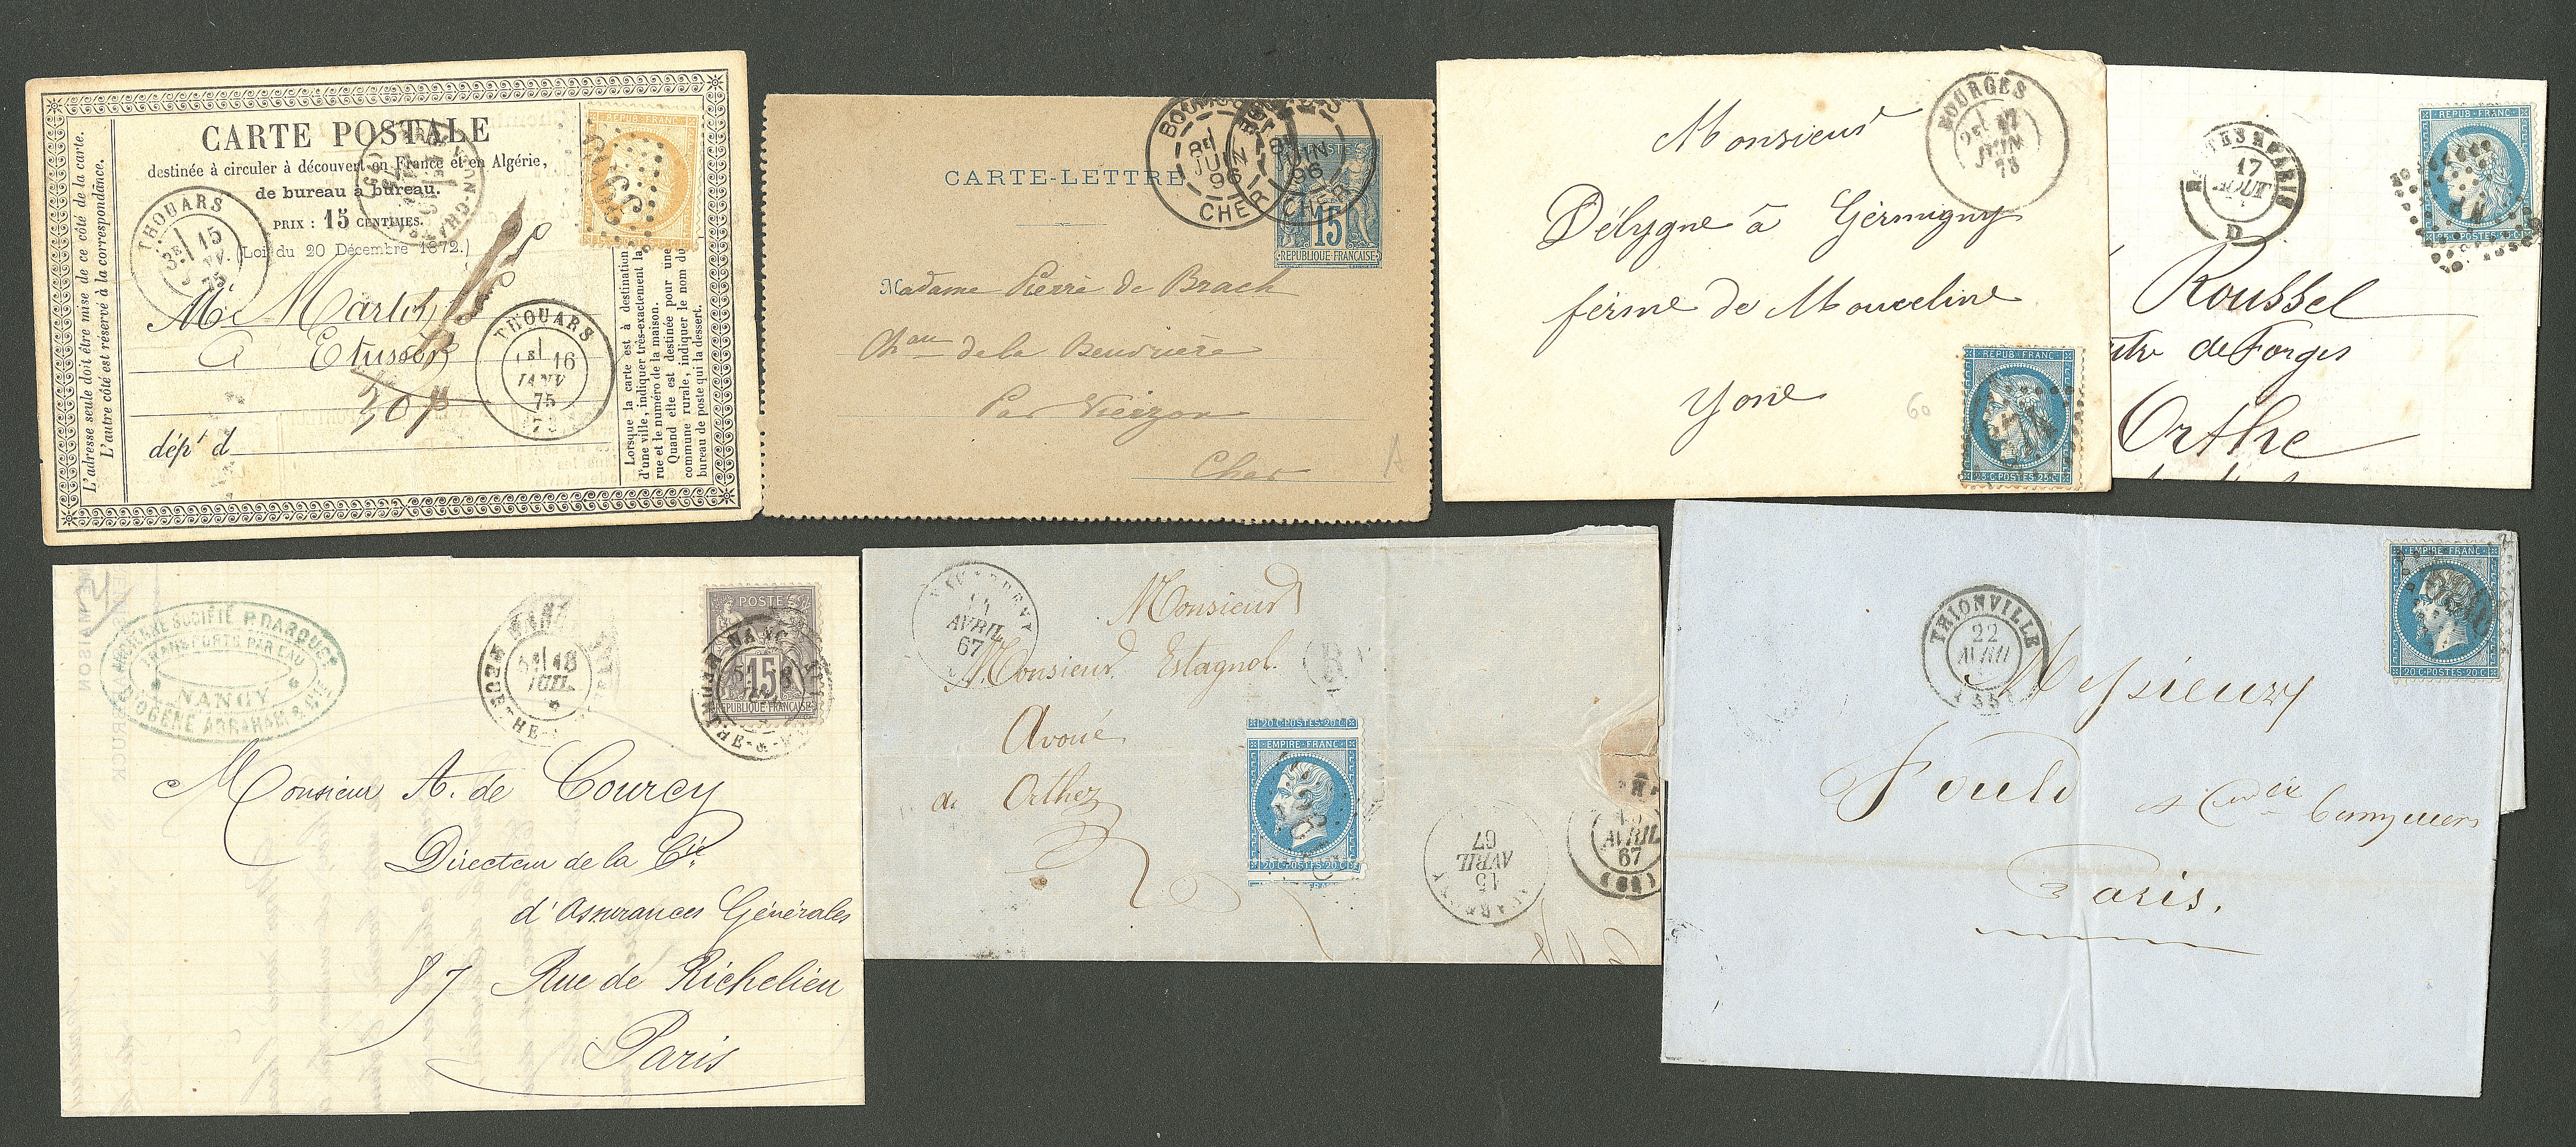 CARTE POSTALE
destinée à circuler à découvert en France et en Algérie,
de bureau à bureau.
PRIX : 15 CENTIMES.
(Loi du 20 Décembre 1872.)
L'adresse seule doit être mise de ce côté de la carte.
L'autre côté est réservé à la correspondance.
THOUARS
3E 15
75
REPUB·FRANC
Mr
A Etusson
THOUARS
16
JANV
75
dépt d
Lorsque la carte est à destination
d'une ville, indiquer très-exactement la
rue et le numéro de la maison.
Quand elle est destinée pour une
commune rurale, indiquer le nom du
bureau de poste qui la dessert.
CARTE-LETTRE
8E
JUIN
96
CHER
JUIN
96
CHER
POSTES
15
REPUBLIQUE FRANÇAISE
Madame Pierre de Brach
Chau de la
Par Vierzon
Cher
A
BOURGES
2E 17
JUIN
73
Monsieur
Délygne à Germigny
ferme de
Yone
60
REPUB·FRANC
25·C·POSTES·25·C
17
AOUT
D
REPUB·FRANC
25·C·POSTES·25·C
Roussel
de Forges
Orthe
TRANSPORTS PAR EAU
NANCY
DIOGÈNE ABRAHAM & CIE
18
JUIL
POSTES
15
REPUBLIQUE FRANÇAISE
Monsieur A. de Courcy
Directeur de la Cie
d'Assurances Générales
87 Rue de Richelieu
Paris
AVRIL
67
Monsieur
Monsieur Estagnol.
Avoué
de Orthez
B
20·C·POSTES·20·C
EMPIRE·FRANC
20·C·POSTES·20·C
15
AVRIL
67
AVRIL
67
THIONVILLE
22
AVRIL
EMPIRE·FRANC
20·C·POSTES·20·C
Messieurs
Fould
Paris.